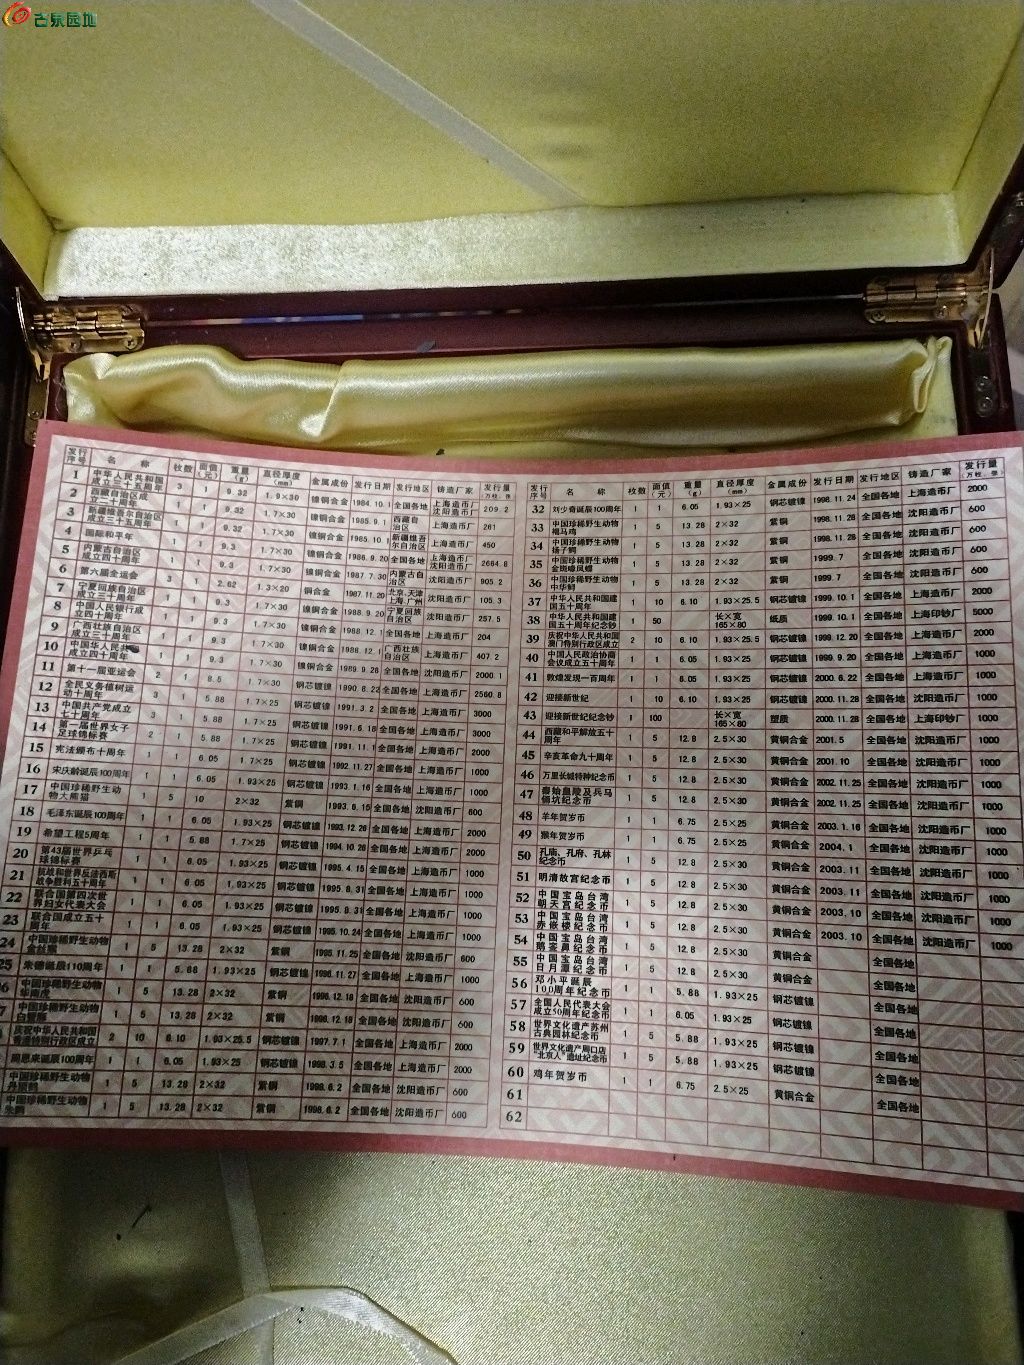 发行序号 名 称 枚数 面值(元) 重量(g) 直径厚度(mm) 金属成份 发行日期 发行地区 铸造厂家 发行量 万枚、张
1 中华人民共和国成立三十五周年 3 1 9.32 1.9×30 镍铜合金 1984.10.1 全国各地 上海造币厂 沈阳造币厂 209.2
2 西藏自治区成立二十周年 1 1 9.32 1.7×30 镍铜合金 1985.9.1 西藏自治区 上海造币厂 261
3 新疆维吾尔自治区成立三十五周年 1 1 9.32 1.7×30 镍铜合金 1985.10.1 新疆维吾尔自治区 上海造币厂 450
4 国际和平年 1 1 9.3 1.7×30 镍铜合金 1986.9.20 全国各地 上海造币厂 沈阳造币厂 2664.8
5 内蒙古自治区成立四十周年 1 1 9.3 1.7×30 镍铜合金 1987.7.30 内蒙古自治区 沈阳造币厂 905.2
6 第六届全运会 3 1 2.62 1.3×20 铜合金 1987.11.20 北京、天津 上海、广州 沈阳造币厂 105.3
7 宁夏回族自治区成立三十周年 1 1 9.3 1.7×30 镍铜合金 1988.9.20 宁夏回族自治区 沈阳造币厂 257.5
8 中国人民银行成立四十周年 1 1 9.3 1.7×30 镍铜合金 1988.12.1 全国各地 上海造币厂 204
9 广西壮族自治区成立三十周年 1 1 9.3 1.7×30 镍铜合金 1988.12.1 广西壮族自治区 上海造币厂 407.2
10 中国华人民共和国成立四十周年 1 1 9.3 1.7×30 镍铜合金 1989.9.28 全国各地 沈阳造币厂 2000.1
11 第十一届亚运会 2 1 8.5 1.7×30 钢芯镀镍 1990.8.22 全国各地 上海造币厂 2560.8
12 全民义务植树运动十周年 3 1 5.88 1.7×25 钢芯镀镍 1991.3.2 全国各地 上海造币厂 3000
13 中国共产党成立七十周年 3 1 5.88 1.7×25 钢芯镀镍 1991.6.18 全国各地 上海造币厂 3000
14 第一届世界女子足球锦标赛 2 1 5.88 1.7×25 钢芯镀镍 1991.11.1 全国各地 上海造币厂 2000
15 宪法颁布十周年 1 1 6.05 1.7×25 钢芯镀镍 1992.11.27 全国各地 上海造币厂 1000
16 宋庆龄诞辰100周年 1 1 6.05 1.93×25 钢芯镀镍 1993.1.16 全国各地 上海造币厂 1000
17 中国珍稀野生动物大熊猫 1 5 10 2×32 紫铜 1993.6.15 全国各地 沈阳造币厂 600
18 毛泽东诞辰100周年 1 1 6.05 1.93×25 钢芯镀镍 1993.12.26 全国各地 上海造币厂 2000
19 希望工程5周年 1 1 5.88 1.7×25 钢芯镀镍 1994.10.26 全国各地 沈阳造币厂 1000
20 第43届世界乒乓球锦标赛 1 1 6.05 1.93×25 钢芯镀镍 1995.4.15 全国各地 上海造币厂 1000
21 抗战和世界反法西斯战争胜利五十周年 1 1 6.05 1.93×25 钢芯镀镍 1995.8.31 全国各地 上海造币厂 1000
22 联合国第四次世界妇女代表大会 1 1 6.05 1.93×25 钢芯镀镍 1995.8.31 全国各地 沈阳造币厂 1000
23 联合国成立五十周年 1 1 6.05 1.93×25 钢芯镀镍 1995.10.24 全国各地 上海造币厂 1000
24 中国珍稀野生动物金丝猴 1 5 13.28 2×32 紫铜 1995.11.25 全国各地 沈阳造币厂 600
25 朱德诞辰110周年 1 1 5.88 1.93×25 钢芯镀镍 1996.11.27 全国各地 上海造币厂 1000
6 中国珍稀野生动物华南虎 1 5 13.28 2×32 紫铜 1996.12.18 全国各地 沈阳造币厂 600
7 中国珍稀野生动物白鳍豚 1 5 13.28 2×32 紫铜 1996.12.18 全国各地 沈阳造币厂 600
庆祝中华人民共和国香港特别行政区成立 2 10 6.10 1.93×25.5 钢芯镀镍 1997.7.1 全国各地 上海造币厂 2000
周恩来诞辰100周年 1 1 6.05 1.93×25 钢芯镀镍 1998.3.5 全国各地 上海造币厂 2000
中国珍稀野生动物丹顶鹤 1 5 13.29 2×32 紫铜 1998.6.2 全国各地 沈阳造币厂 600
中国珍稀野生动物朱鹮 1 5 13.28 2×32 紫铜 1998.6.2 全国各地 沈阳造币厂 600
发行序号 名 称 枚数 面值(元) 重量(g) 直径厚度(mm) 金属成份 发行日期 发行地区 铸造厂家 发行量 万枚、张
32 刘少奇诞辰100周年 1 1 6.05 1.93×25 钢芯镀镍 1998.11.24 全国各地 上海造币厂 2000
33 中国珍稀野生动物褐马鸡 1 5 13.28 2×32 紫铜 1998.11.28 全国各地 沈阳造币厂 600
34 中国珍稀野生动物扬子鳄 1 5 13.28 2×32 紫铜 1998.11.28 全国各地 沈阳造币厂 600
35 中国珍稀野生动物金斑喙凤蝶 1 5 13.28 2×32 紫铜 1999.7 全国各地 沈阳造币厂 600
36 中国珍稀野生动物中华鲟 1 5 13.28 2×32 紫铜 1999.7 全国各地 沈阳造币厂 600
37 中华人民共和国建国五十周年 1 10 6.10 1.93×25.5 钢芯镀镍 1999.10.1 全国各地 沈阳造币厂 1000
38 中华人民共和国建国五十周年纪念钞 1 50 长×宽 165×80 纸质 1999.10.1 全国各地 上海印钞厂 5000
39 庆祝中华人民共和国澳门特别行政区成立 2 10 6.10 1.93×25.5 钢芯镀镍 1999.12.20 全国各地 上海造币厂 2000
40 中国人民政治协商会议成立五十周年 1 1 6.05 1.93×25 钢芯镀镍 1999.9.20 全国各地 上海造币厂 1000
41 敦煌发现一百周年 1 1 6.05 1.93×25 钢芯镀镍 2000.6.22 全国各地 上海造币厂 1000
42 迎接新世纪 1 10 6.10 1.93×25 钢芯镀镍 2000.11.28 全国各地 沈阳造币厂 1000
43 迎接新世纪纪念钞 1 100 长×宽 165×80 塑质 2000.11.28 全国各地 上海印钞厂 1000
44 西藏和平解放五十周年 1 5 12.8 2.5×30 黄铜合金 2001.5 全国各地 沈阳造币厂 1000
45 辛亥革命九十周年 1 5 12.8 2.5×30 黄铜合金 2001.10 全国各地 沈阳造币厂 1000
46 万里长城特种纪念币 1 5 12.8 2.5×30 黄铜合金 2002.11.25 全国各地 沈阳造币厂
47 秦始皇陵及兵马俑坑纪念币 1 5 12.8 2.5×30 黄铜合金 2002.11.25 全国各地 沈阳造币厂
48 羊年贺岁币 1 1 6.75 2.5×25 黄铜合金 2003.1.16 全国各地 沈阳造币厂 1000
49 猴年贺岁币 1 1 6.75 2.5×25 黄铜合金 2004.1 全国各地 沈阳造币厂 1000
50 孔庙、孔府、孔林纪念币 1 5 12.8 2.5×30 黄铜合金 2003.11 全国各地 沈阳造币厂 1000
51 明清故宫纪念币 1 5 12.8 2.5×30 黄铜合金 2003.11 全国各地 沈阳造币厂 1000
52 中国宝岛台湾朝天宫纪念币 1 5 12.8 2.5×30 黄铜合金 2003.10 全国各地 沈阳造币厂 1000
53 中国宝岛台湾赤嵌楼纪念币 1 5 12.8 2.5×30 黄铜合金 2003.10 全国各地 沈阳造币厂 1000
54 中国宝岛台湾鹅銮鼻纪念币 1 5 12.8 2.5×30 黄铜合金 全国各地
55 中国宝岛台湾日月潭纪念币 1 5 12.8 2.5×30 黄铜合金 全国各地
56 邓小平诞辰100周年纪念币 1 1 5.88 1.93×25 钢芯镀镍 全国各地
57 全国人民代表大会成立50周年纪念币 1 1 6.05 1.93×25 钢芯镀镍 全国各地
58 世界文化遗产苏州古典园林纪念币 1 5 5.88 1.93×25 钢芯镀镍 全国各地
59 世界文化遗产周口店“北京人”遗址纪念币 1 5 5.88 1.93×25 钢芯镀镍 全国各地
60 鸡年贺岁币 1 1 6.75 2.5×25 黄铜合金 全国各地
61
62
古泉园地